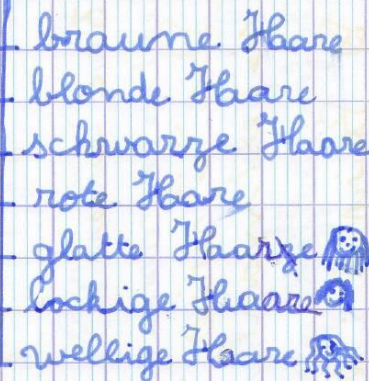 braune Haare
blonde Haare
schwarze Haare
rote Haare
glatte Haare
lockige Haare
wellige Haare